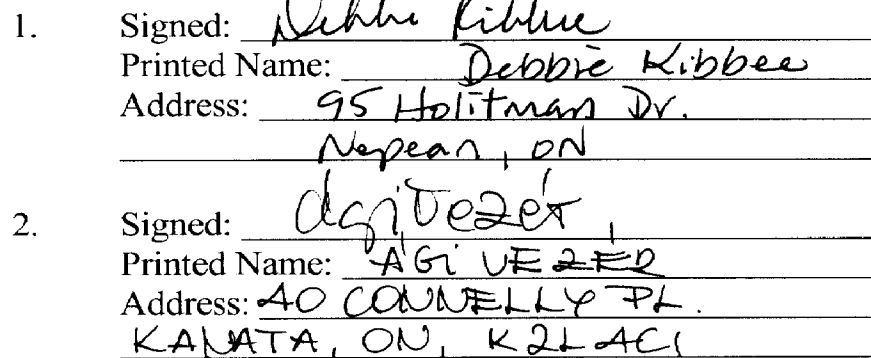 1. Signed: Debbie Kibbee
Printed Name: Debbie Kibbee
Address: 95 Holitman Dr.
Nepean, ON
2. Signed: Ági Vezér
Printed Name: ÁGi VEZÉR
Address: 40 CONNELLY PL.
KANATA, ON, K2L